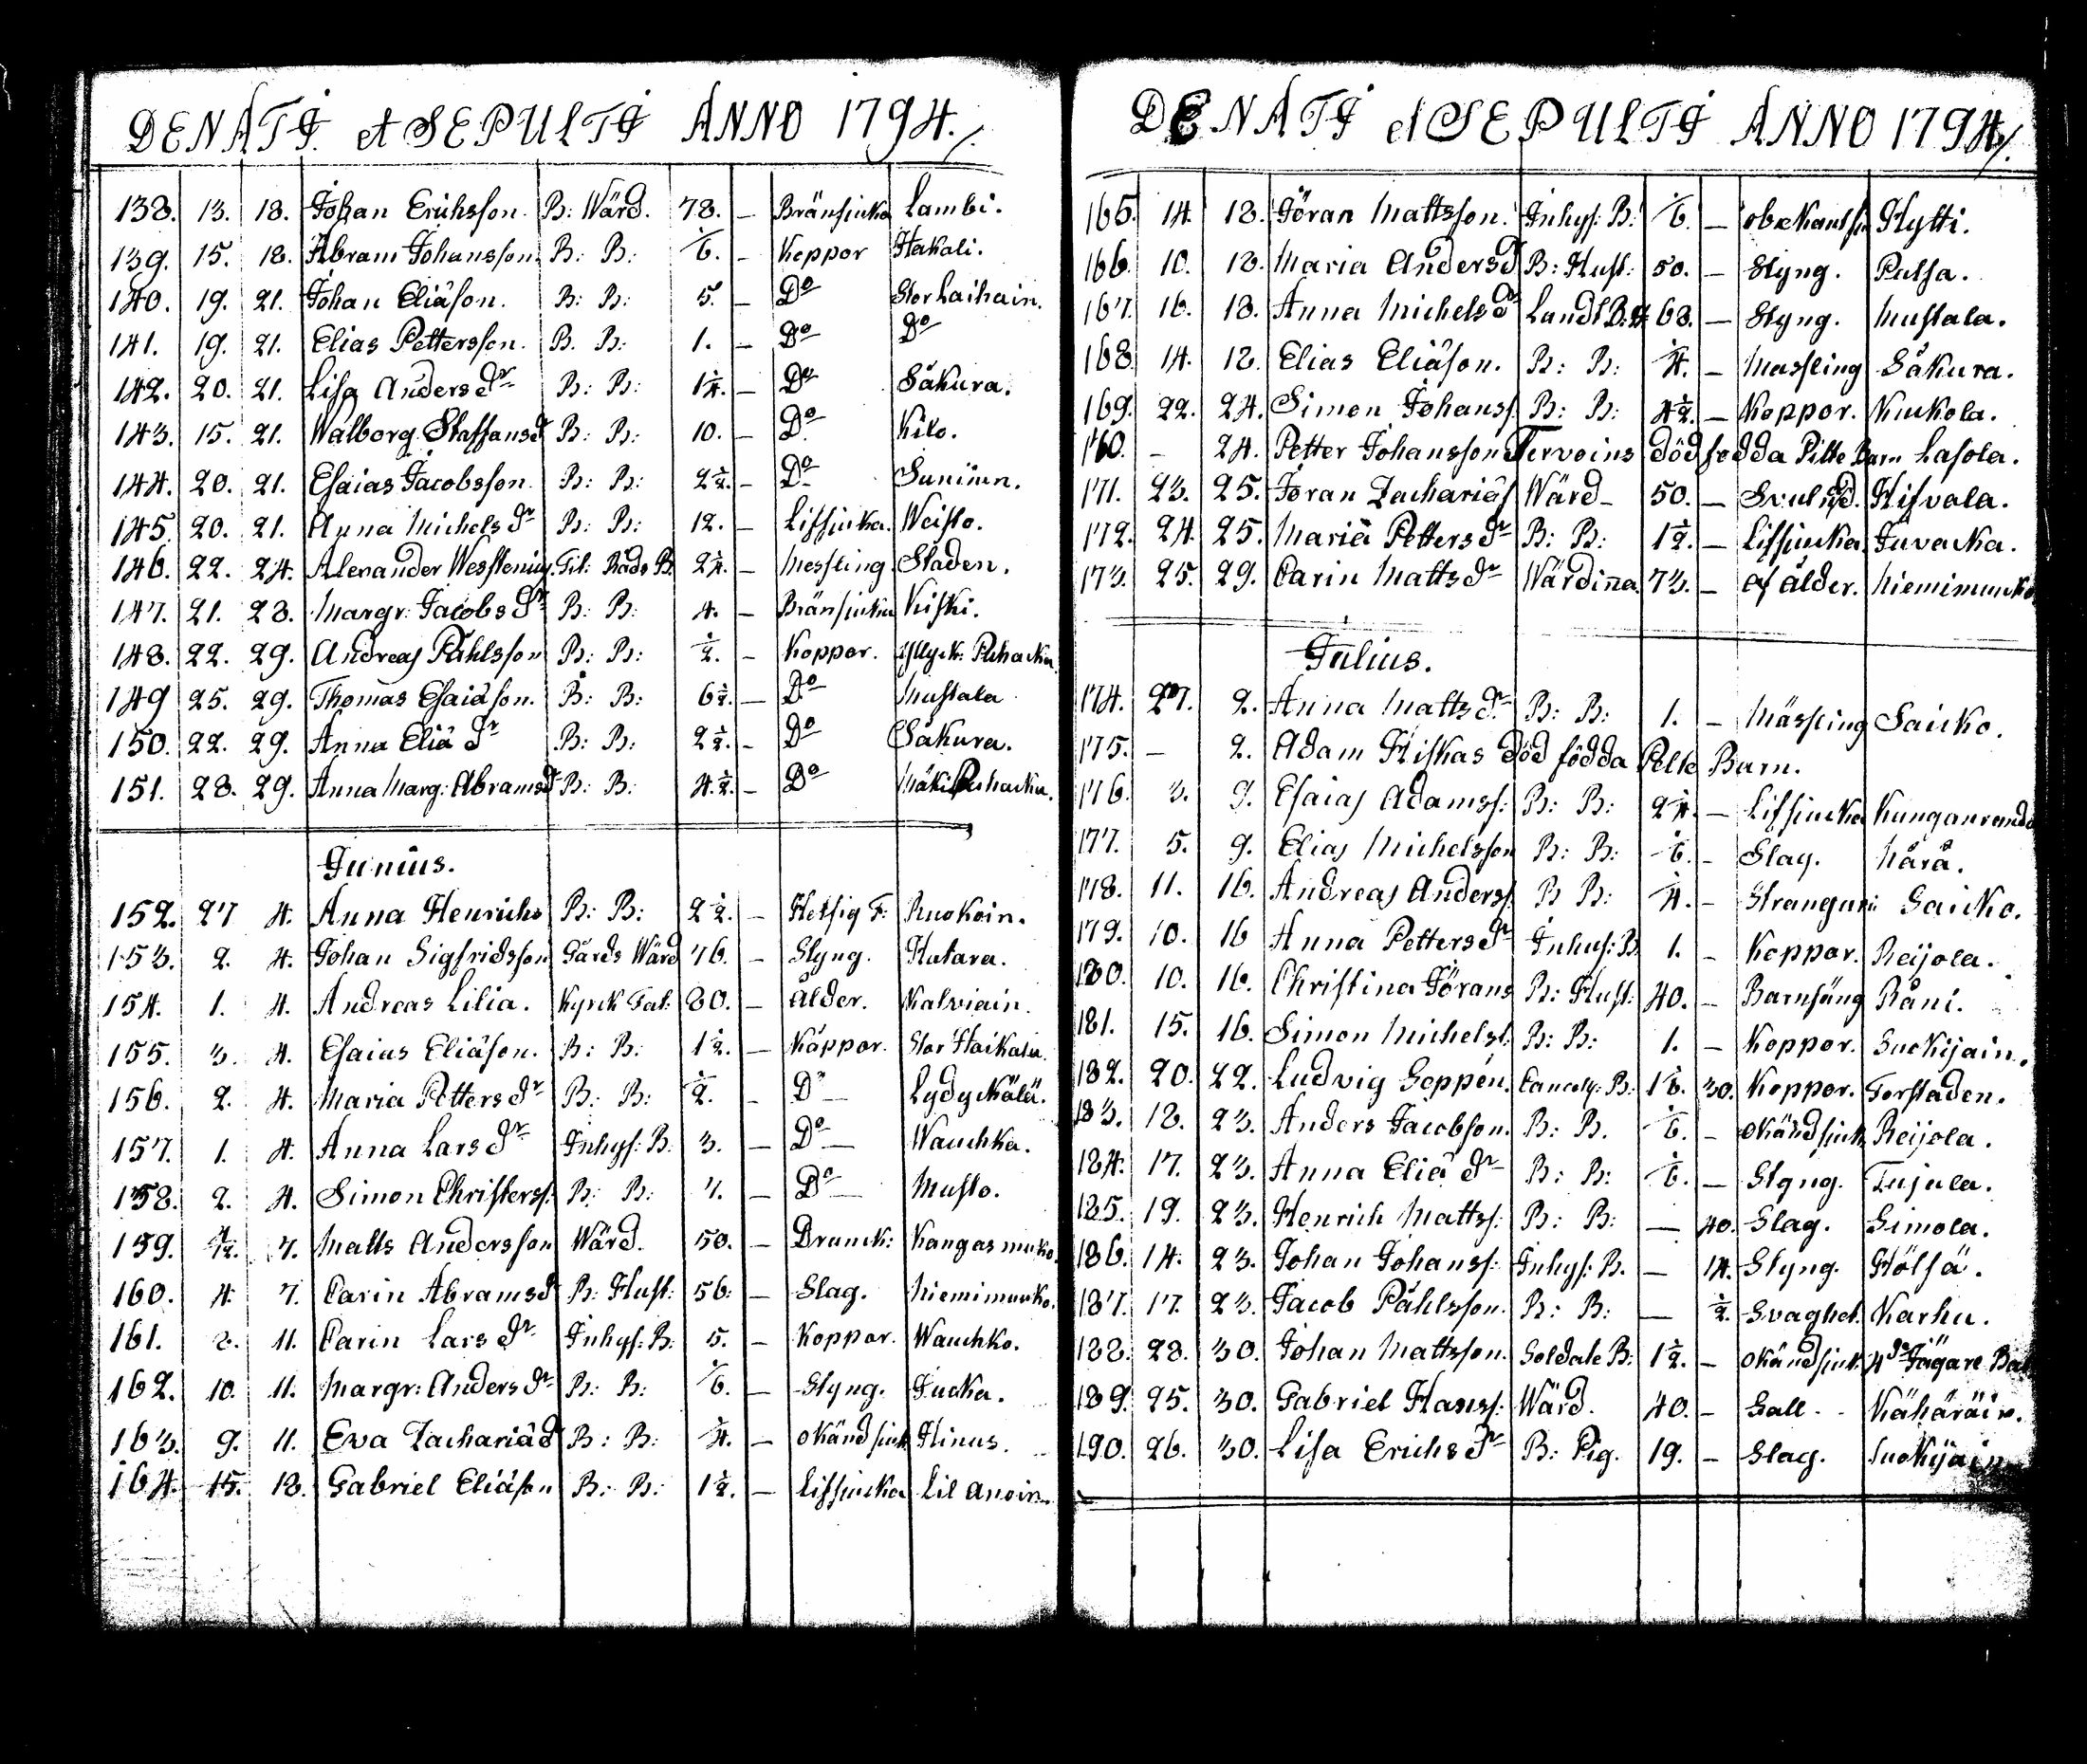 DENATI et SEPULTI ANNO 1794.
138. 13. 18. Johan Erichsson. B: Wärd. 78. – Bränsiucka Lambi.
139. 15. 18. Abram Johansson. B: B: 1/6. – Koppor Hakali.
140. 19. 21. Johan Eliæson. B: B: 5. – Do Stor Laihain.
141. 19. 21. Elias Pettersson. B. B: 1. – Do Do
142. 20. 21. Lisa Anders Dr B: B: 1 1/4. – Do Säkura.
143. 15. 21. Walborg Staffansd B: B: 10. – Do Kilo.
144. 20. 21. Esaias Jacobsson. B: B: 2 1/2. – Do
145. 20. 21. Anna Michels Dr B: B: 12. – Lifsiucka. Weisto.
146. 22. 24. Alexander Westenius. Tit: Råds B. 2 1/4. – Messling Staden.
147. 21. 28. Margr: Jacobs Dr B: B: 4. – Bränsiucka Kiski.
148. 22. 29. Andreas Påhlsson B: B: 1/2. – Koppor.
149 25. 29. Thomas Esaiæson. B: B: 6 1/2. – Do Mustala
150. 22. 29. Anna Eliæ Dr B: B: 2 1/2. – Do Säkura.
151. 28. 29. Anna Marg: Abramsd B: B: 4 1/2. – Do
Junius.
152. 27 4. Anna Henrichs B: B: 2 1/2. – Hetsig F: Ruokoin.
153. 2. 4. Johan Sigfridsson Gårds Wärd 76. – Styng. Hatara.
154. 1. 4. Andreas Lilia. Kyrck Fat: 80. – Ålder. Kalviain.
155. 3. 4. Esaias Eliæson. B: B: 1 1/2. – Koppor. Stor Haikala.
156. 2. 4. Maria Petters Dr B: B: 1/2. – Do Lydyckälä.
157. 1. 4. Anna Lars Dr Inhys: B. 3. – Do Wauhka.
158. 2. 4. Simon Christerss: B: B: 7. – Do Musto.
159. 7. Matts Andersson Wärd. 50. – Drunck: Kangasmuko.
160. 4. 7. Carin Abramsd B: Hust: 56. – Slag. Niemimuko.
161. 8. 11. Carin Lars Dr Inhys: B. 5. – Koppor. Wauhko.
162. 10. 11. Margr: Anders Dr B: B: 1/6. – Styng. Jucka.
163. 9. 11. Eva Zachariæ D B: B: 1/4. – Okänd siuk. Hinus.
164. 15. 18. Gabriel Eliæson B: B: 1 1/2. – Lifsiucka Lil Anoin.
DENATI et SEPULTI ANNO 1794.
165. 14. 18. Jöran Mattsson. Inhys: B: 1/6. – Hytti.
166. 10. 18. Maria Anders D B: Hust: 50. – Styng. Pulsa.
167. 16. 18. Anna Michels Dr 68. – Styng. Mustala.
168. 14. 18. Elias Eliæson. B: B: 1/4. – Massling Säkura.
169. 22. 24. Simon Johanss. B: B: 4 1/2. – Koppor. Kuckola.
170. – 24. Petter Johansson Tervoins död födda Pilte Barn Lasola.
171. 23. 25. Jöran Zachariæs Wärd – 50. – Hisvala.
172. 24. 25. Maria Petters Dr B: B: 1 1/2. – Lifsiucka. Juvacka.
173. 25. 29. Carin Matts Dr Wärdinna. 73. – af ålder. Niemimucko
Julius.
174. 27. 2. Anna Matts Dr B: B: 1. – Mässling Saicko.
175. – 2. Adam Hiskas död födda Pelte Barn.
176. 3. 9. Esaias Adamss: B: B: 2 1/4. – Lifsiucka
177. 5. 9. Elias Michelsson B: B: 1/6. – Slag. Kärä.
178. 11. 16. Andreas Anderss. B B: 1/4. – Stranguri: Saicko.
179. 10. 16 Anna Petters Dr Inhys: B. 1. – Koppor. Reijola.
180. 10. 16. Christina Jörans B: Hust: 40. – Barnsäng Räni.
181. 15. 16. Simon Michelss: B: B: 1. – Koppor. Suckijain.
182. 20. 22. Ludvig Seppén. Cancely: B: 1 1/6. 30. Koppor. Forstaden.
183. 18. 23. Anders Jacobson. B: B. 1/6. – Okänd siuk. Reijola.
184. 17. 23. Anna Eliæ Dr B: B: 1/6. – Styng. Tujula.
185. 19. 23. Henrich Mattss: B: B: – 40. Slag. Simola.
186. 14. 23. Johan Johanss: Inhys: B. – 14. Styng. Hölsä.
187. 17. 23. Jacob Påhlsson. B: B: – 1/2. Svaghet. Karhu.
188. 28. 30. Johan Mattsson. Soldate B: 1 1/2. – Okänd siuk. 4de Jägare Bat
189. 25. 30. Gabriel Hanss: Wärd. 40. – Gall. Kähäräin.
190. 26. 30. Lisa Erichs Dr B: Pig. 19. – Slag. Suckijain